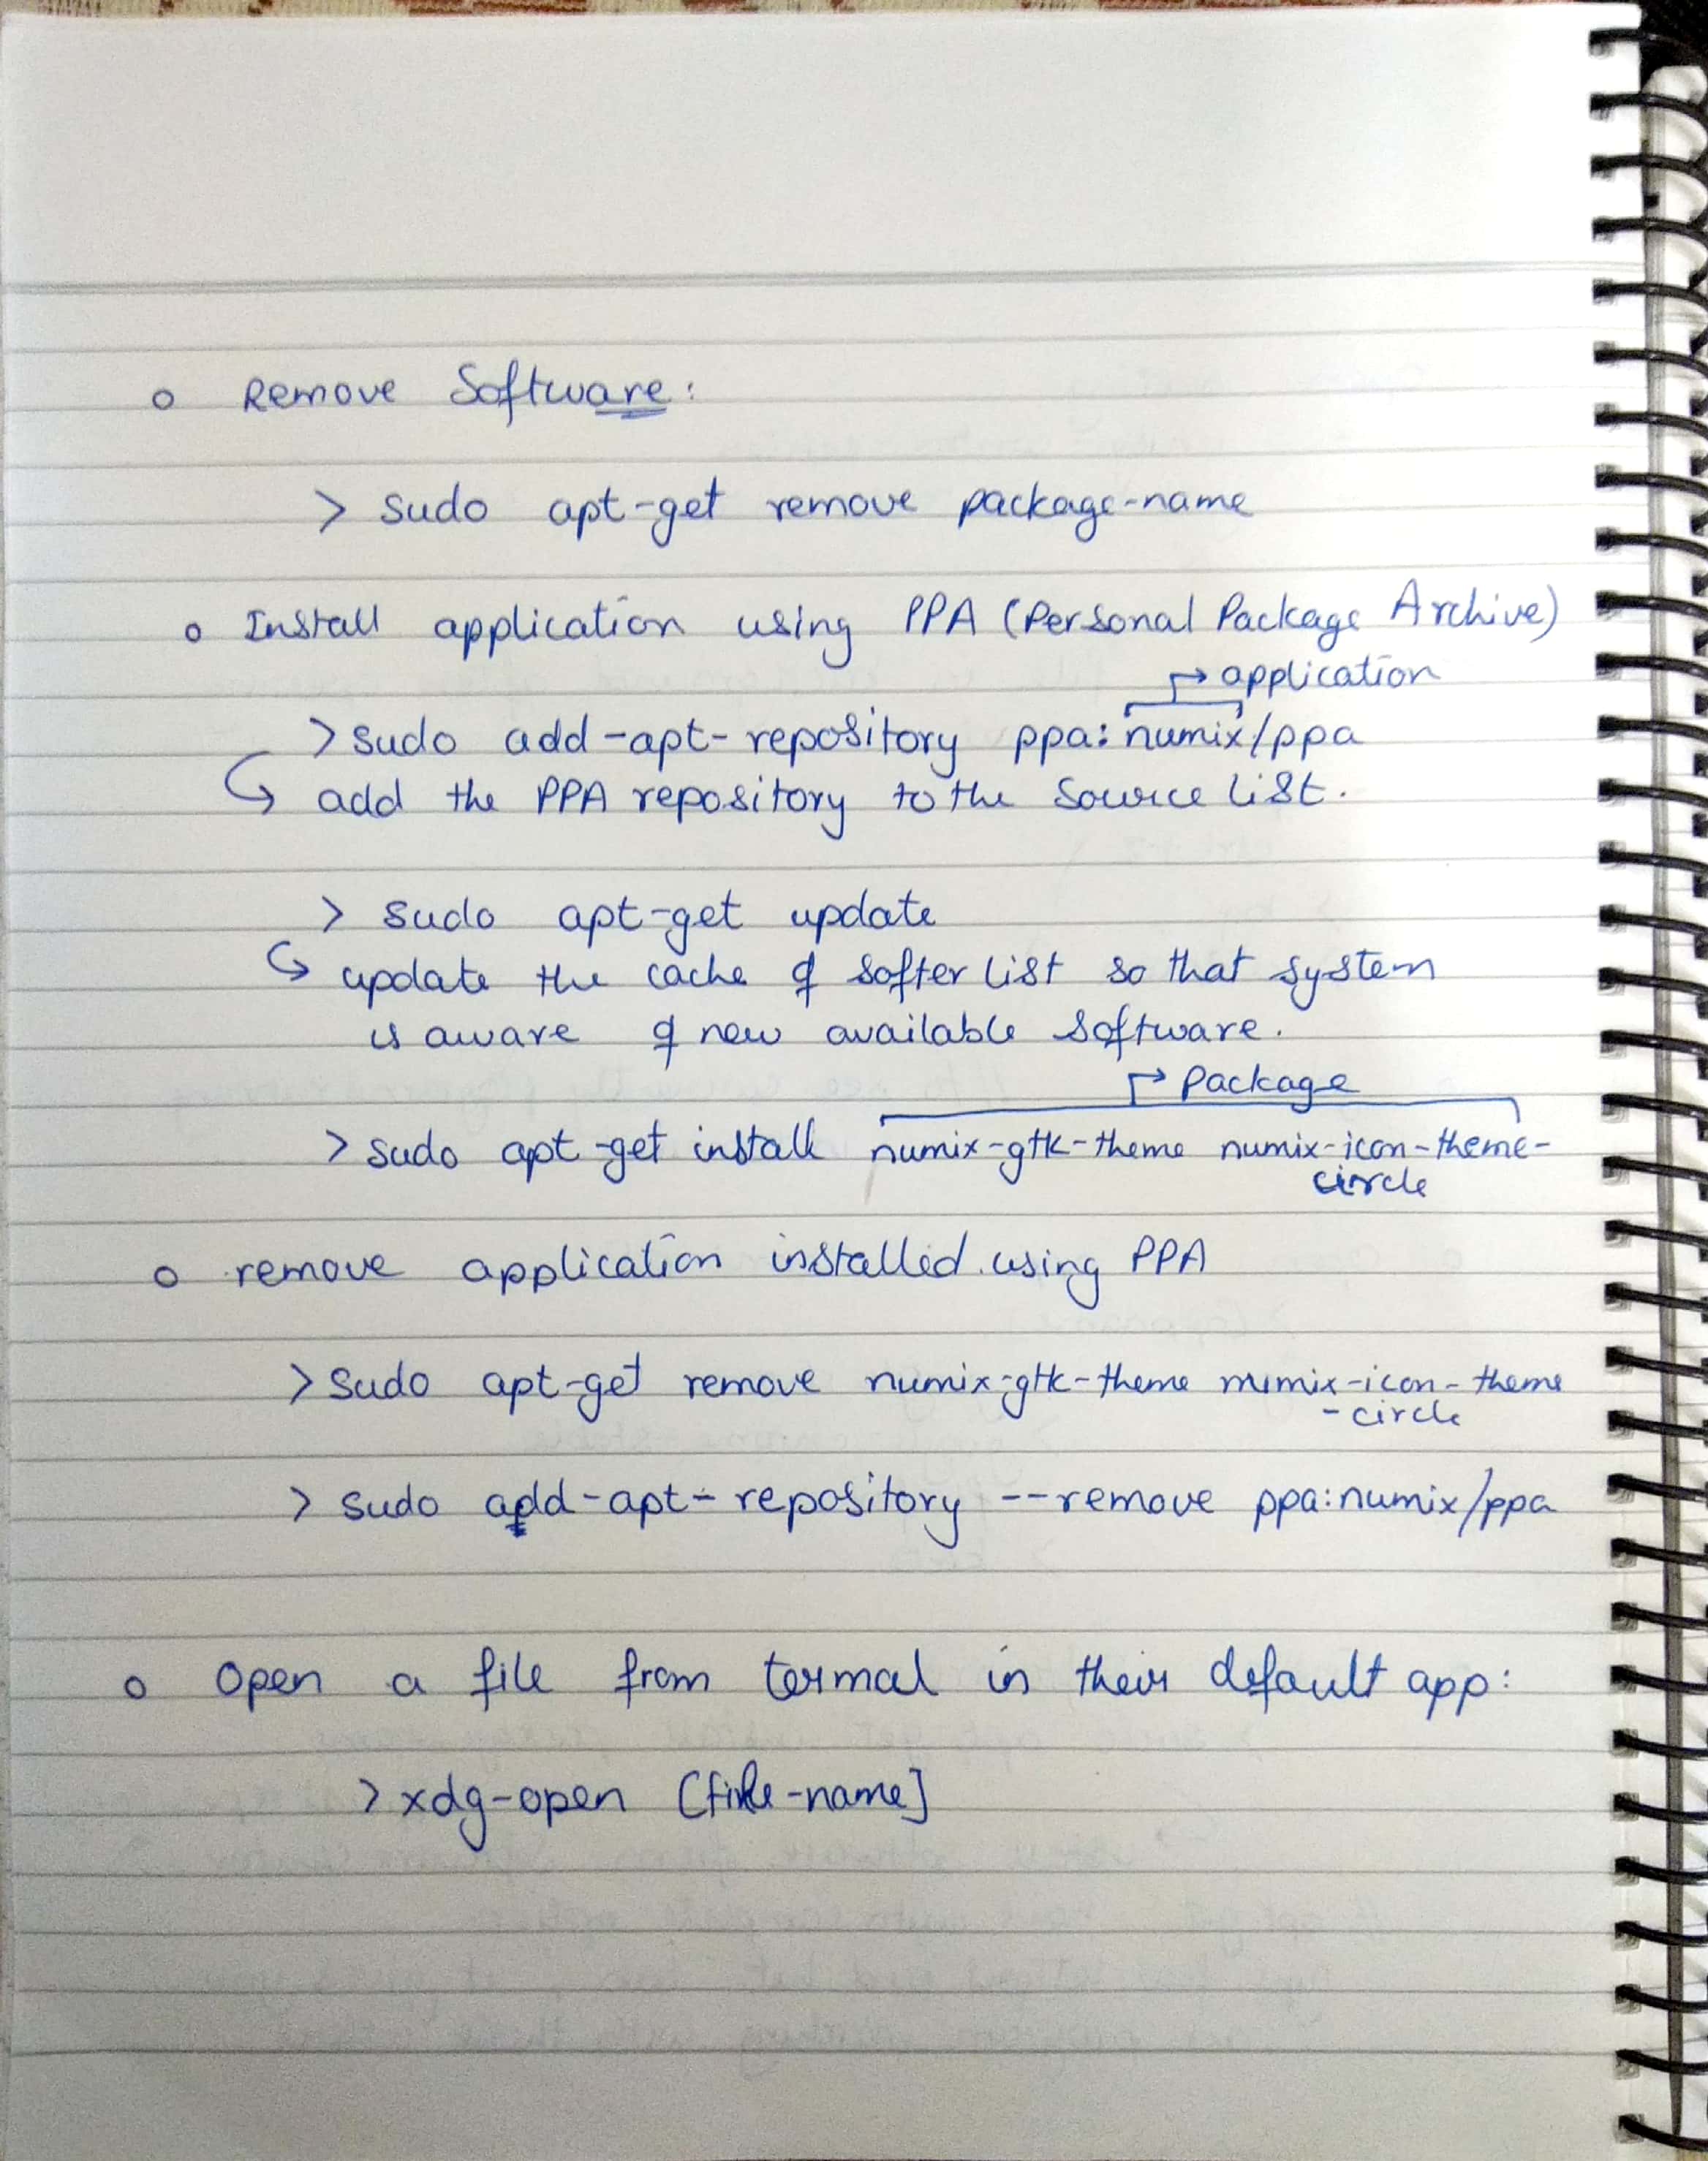 o Remove Software:
> sudo apt-get remove package-name
o Install application using PPA (Personal Package Archive)
↱ application
> sudo add-apt-repository ppa: numix/ppa
↳ add the PPA repository to the source list.
> sudo apt-get update
↳ update the cache of softer list so that system
is aware of new available software.
↱ Package
> sudo apt-get install numix-gtk-theme numix-icon-theme-
circle
o remove application installed using PPA
> sudo apt-get remove numix-gtk-theme numix-icon-theme
-circle
> sudo add-apt-repository --remove ppa:numix/ppa
o Open a file from termal in their default app:
> xdg-open [file-name]